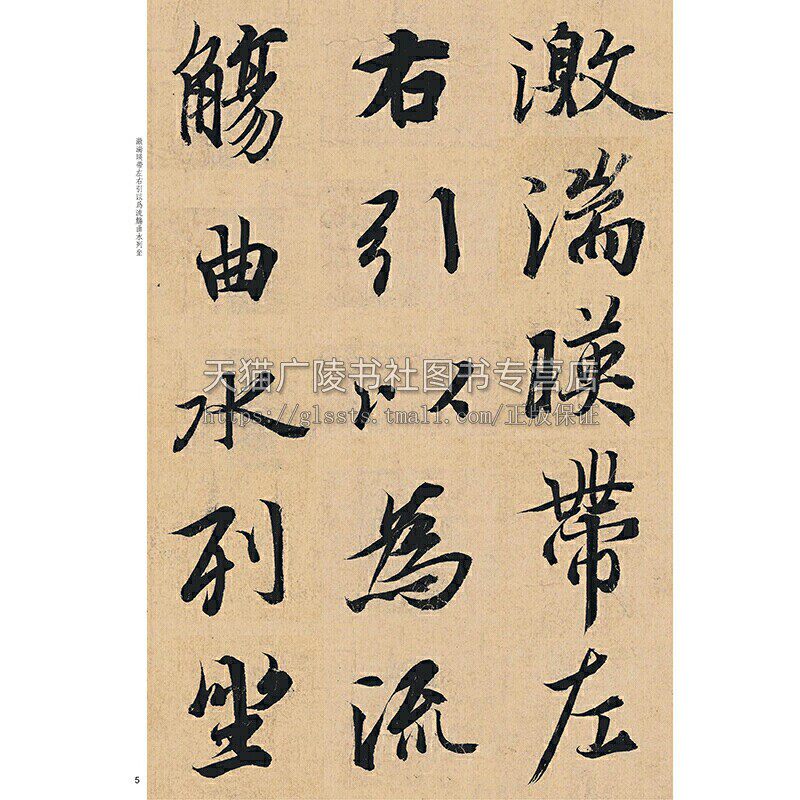 激湍暎帶左
右引以為流
觴曲水列坐
激湍暎帶左右引以為流觴曲水列坐
天猫广陵书社图书专营店
https://glssts.tmall.com/正版保证
5